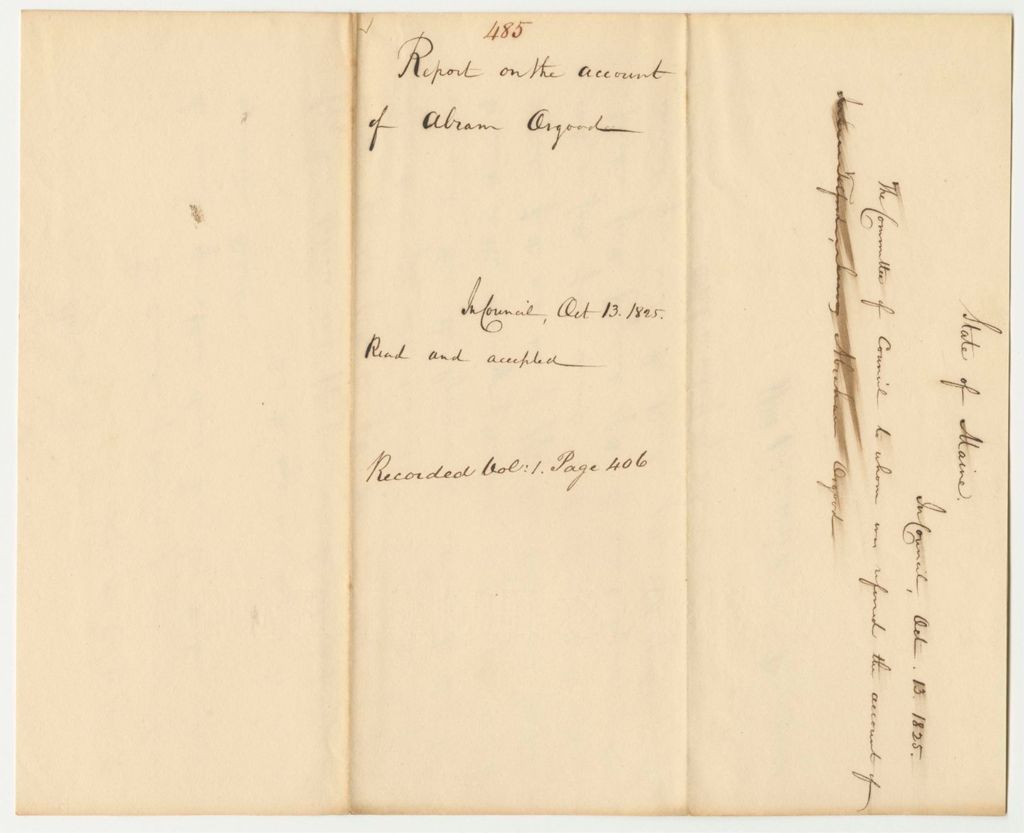 485
Report on the account
of Abram Osgood
In Council, Oct 13. 1825.
Read and accepted
Recorded Vol: 1. Page 406
State of Maine.
In Council, Oct. 13. 1825.
The Committee of Council to whom was referred the account of
Osgood